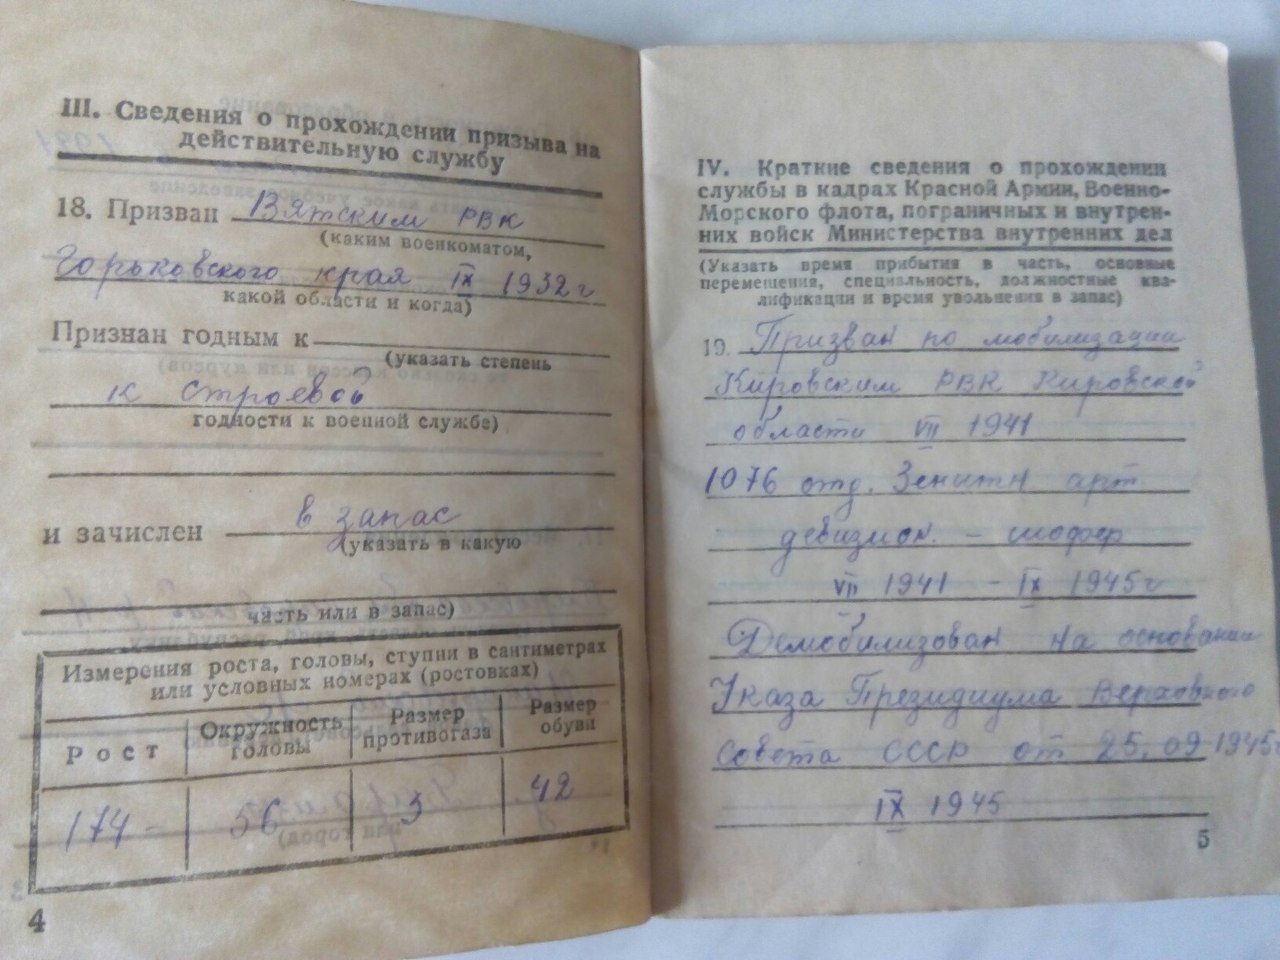 III. Сведения о прохождении призыва на
действительную службу
18. Призван Вятским РВК
(каким военкоматом,
Горьковского края IX 1932 г
какой области и когда)
Признан годным к
(указать степень
к строевой
годности к военной службе)
и зачислен в запас
(указать в какую
часть или в запас)
Измерения роста, головы, ступни в сантиметрах
или условных номерах (ростовках)
Рост Окружность головы Размер противогаза Размер обуви
174 - 56 3 42
4
IV. Краткие сведения о прохождении
службы в кадрах Красной Армии, Военно-
Морского флота, пограничных и внутрен-
них войск Министерства внутренних дел
(Указать время прибытия в часть, основные
перемещения, специальность, должностные ква-
лификации и время увольнения в запас)
19. Призван по мобилизации
Кировским РВК Кировской
области VII 1941
1076 отд. Зенитн арт
девизион. - шофер
VII 1941 - IX 1945 г
Демобилизован на основании
Указа Президиума Верховного
Совета СССР от 25.09 1945г
IX 1945
5